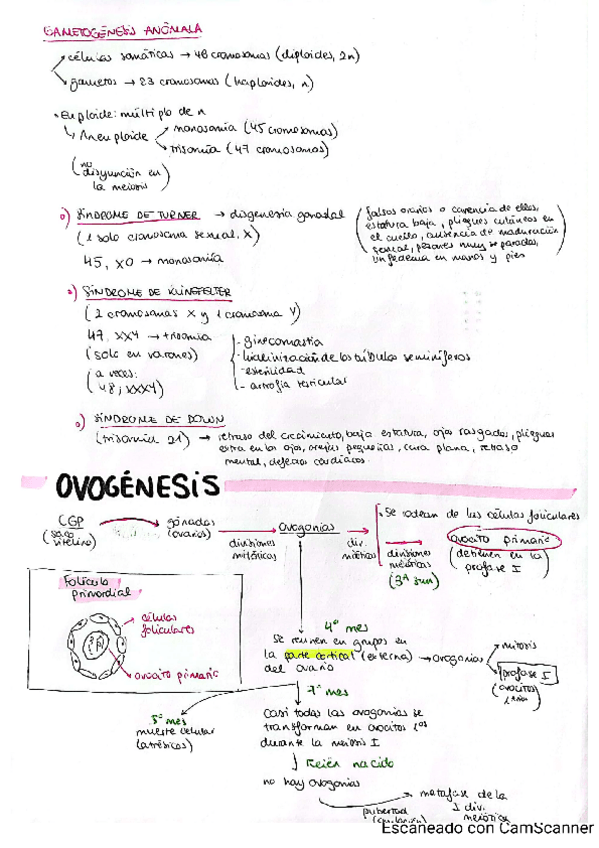 GAMETOGÉNESIS ANÓMALA
células somáticas → 46 cromosomas (diploides, 2n)
gametos → 23 cromosomas (haploides, n)
Euploide: múltiplo de n
Aneuploide
monosomía (45 cromosomas)
trisomía (47 cromosomas)
(no
disyunción en
la meiosis)
SÍNDROME DE TURNER → disgenesia gonadal
(falsos ovarios o carencia de ellos,
estatura baja, pliegues cutáneos en
el cuello, ausencia de maduración
sexual, pezones muy separados,
linfedema en manos y pies)
(1 solo cromosoma sexual, X)
45, X0 → monosomía
SÍNDROME DE KLINEFELTER
(2 cromosomas X y 1 cromosoma Y)
47, XXY → trisomía
(solo en varones)
(a veces:
48, XXXY)
- ginecomastia
- hialinización de los túbulos seminíferos
- esterilidad
- atrofia testicular
SÍNDROME DE DOWN
(trisomía 21) → retraso del crecimiento, baja estatura, ojos rasgados, pliegues
extra en los ojos, orejas pequeñas, cara plana, retraso
mental, defectos cardíacos.
OVOGÉNESIS
CGP
(saco
vitelino)
gónadas
(ovarios)
divisiones
mitóticas
ovogonias
div.
mitóticas
Se rodean de las células foliculares
divisiones
meióticas
(3ª sem)
ovocito primario
(detienen en la
profase I)
Folículo
primordial
células
foliculares
ovocito primario
4º mes
Se reúnen en grupos en
la parte cortical (externa) → ovogonias
del ovario
mitosis
profase I
(ovocitos
1 arios)
7º mes
5º mes
muerte celular
(atrésicos)
Casi todas las ovogonias se
transforman en ovocitos 1os
durante la meiosis I
Recién nacido
no hay ovogonias
pubertad
metafase de la
1 div.
meiótica
Escaneado con CamScanner